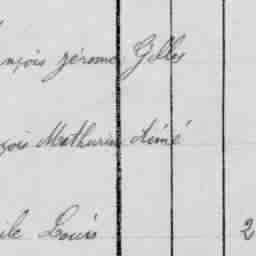 nçois Jérome Gilles
çois Mathurin Aimé
ile Louis 2